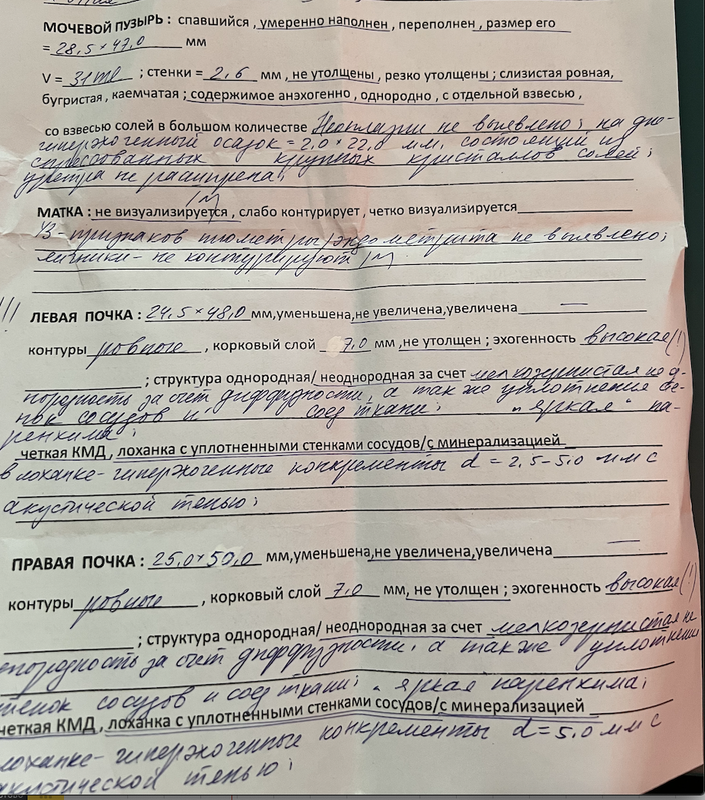 МОЧЕВОЙ ПУЗЫРЬ : спавшийся , умеренно наполнен , переполнен , размер его
= 28,5 × 47,0 мм
V = 31 ml ; стенки = 2,6 мм , не утолщены , резко утолщены ; слизистая ровная,
бугристая , каемчатая ; содержимое анэхогенно , однородно , с отдельной взвесью ,
со взвесью солей в большом количестве Неоплазии не выявлено; на дне-
гиперэхогенный осадок = 2,0 × 22,0 мм, состоящий из
спресованных крупных кристаллов солей;
уретра не расширена;
МАТКА : не визуализируется , слабо контурирует , четко визуализируется
УЗ-признаков пиометры/эндометрита не выявлено;
яичники - не контурируют
!!! ЛЕВАЯ ПОЧКА : 24,5 × 48,0 мм,уменшена,не увеличена,увеличена —
контуры ровные , корковый слой 7,0 мм ,не утолщен ; эхогенность высокая(!)
; структура однородная/ неоднородная за счет мелкозернистая неод-
нородность за счет диффузности, а также уплотнение сте-
нок сосудов и соед ткани; "яркая" па-
ренхима;
четкая КМД , лоханка с уплотненными стенками сосудов/с минерализацией
в лоханке- гиперэхогенные конкременты d = 2,5-5,0 мм с
акустической тенью;
ПРАВАЯ ПОЧКА : 25,0 × 50,0 мм,уменшена,не увеличена,увеличена —
контуры ровные , корковый слой 7,0 мм , не утолщен ; эхогенность высокая(!)
; структура однородная/ неоднородная за счет мелкозернистая не
однородность за счет диффузности, а также уплотнение
стенок сосудов и соед ткани; "яркая паренхима;
четкая КМД , лоханка с уплотненными стенками сосудов/с минерализацией
лоханке- гиперэхогенные конкременты d = 5,0 мм с
акустической тенью;